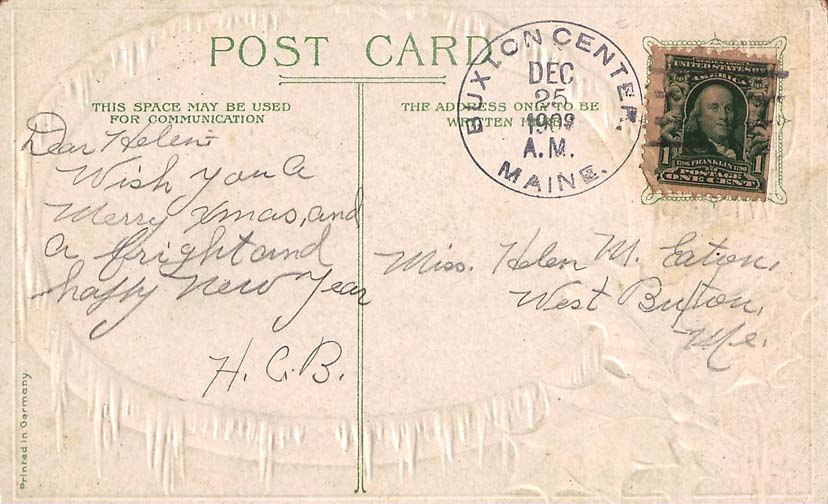 POST CARD
THIS SPACE MAY BE USED
FOR COMMUNICATION
THE ADDRESS ONLY TO BE
WRITTEN HERE
BUXTON CENTER.
DEC
25
1909
A.M.
MAINE.
UNITED STATES
OF AMERICA
1 FRANKLIN 1
POSTAGE
ONE CENT
Dear Helen:
Wish you a
Merry Xmas, and
a bright and
happy New Year
H. C. B.
Miss. Helen M. Eaton,
West Buxton,
Me.
Printed in Germany.